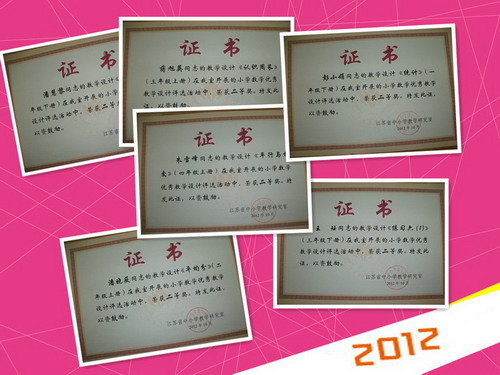 证书
同志的教学设计
年级下册）在我室开展的小学
设计评选活动中，荣获二等
以资鼓励。
江苏省中小
证书
蒋旭英同志的教学设计《认识周长》
（三年级上册）在我室开展的小学数学优秀
教学设计评选活动中，荣获二等奖。特发此证，
以资鼓励。
证书
彭小娟同志的教学设计《统计》（一
年级下册）在我室开展的小学数学优秀教学
设计评选活动中，荣获二等奖。特发此证，
以资鼓励。
江苏省中小学教学研究室
2012年10月
证书
朱雪峰同志的教学设计《平行与相
交》（四年级上册）在我室开展的小学数学
优秀教学设计评选活动中，荣获二等奖。特
发此证，以资鼓励。
江苏省中小学教学研究室
2012年10月
证书
王同志的教学设计《练习六(1)》
（三年级下册）在我室开展的小学数学优秀
教学设计评选活动中，荣获二等奖。特发此证，
以资鼓励。
江苏省中小学教学研究室
2012年10月
证书
同志的教学设计《平均分》（二
年级上册）在我室开展的小学数学优秀教学
设计评选活动中，荣获二等奖。特发此证，
以资鼓励。
江苏省中小学教学研究室
2012年10月
2012